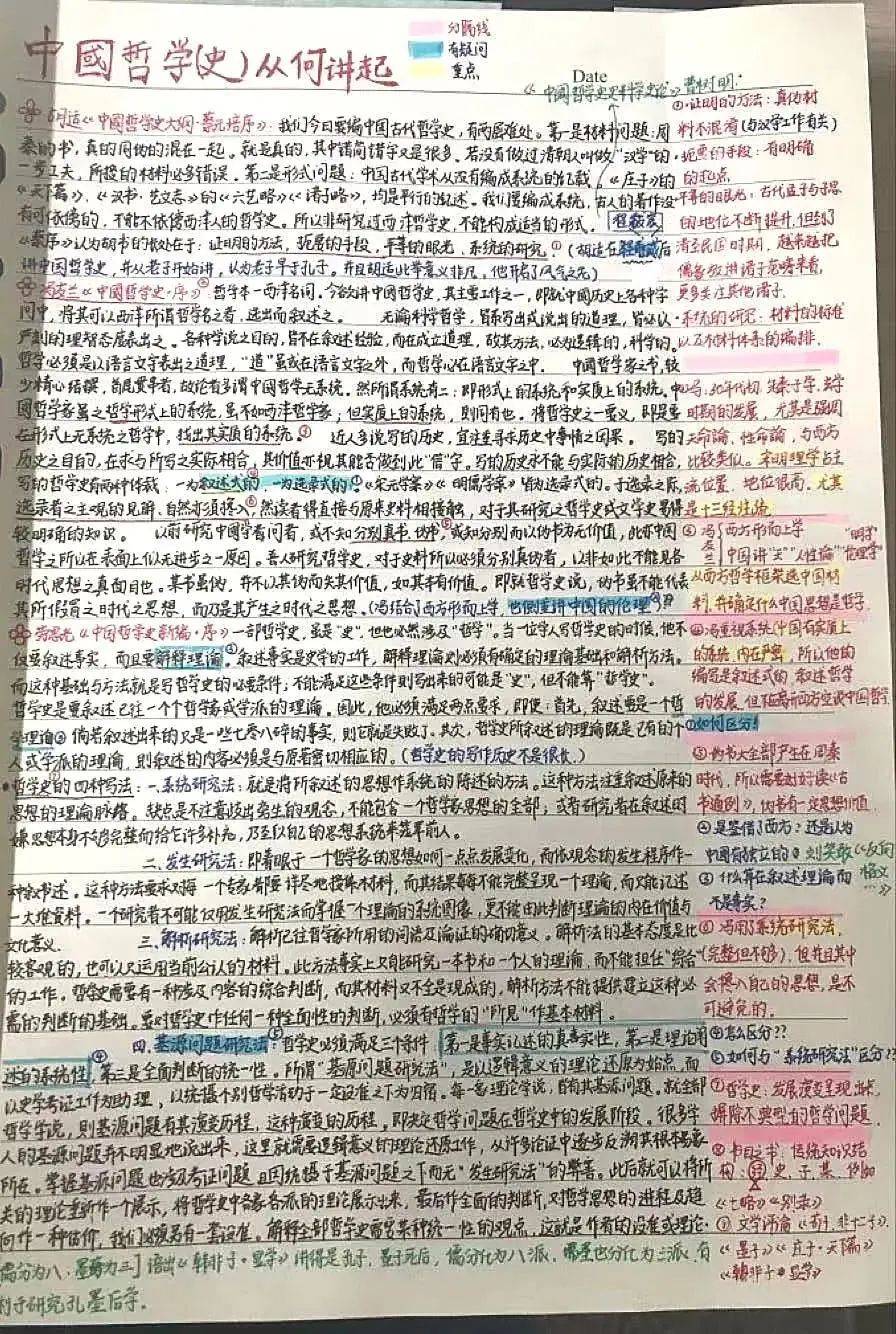 中國哲学(史)从何讲起
分隔线
有疑问
重点
Date
胡适《中國哲学史大网·蔡元培序》：我们今日要编中国古代哲学史，有两层难处。第一是材料问题：周
秦的书，真的同伪的混在一起。就是真的，其中错简错字又是很多。若没有做过清朝人叫做"汉学"的
一步工夫，所搜的材料必多错误。第二是形式问题：中国古代学术从没有编成系统的记载，《庄子》的
《天下篇》，《汉书·艺文志》的《六艺略》《诸子略》，均是平行的纪述。我们要编成系统，古人的著作没
有可依傍的，不能不依傍西洋人的哲学史。所以非研究过西洋哲学史，不能构成适当的形式。
《蔡序》认为胡书的长处在于：证明的方法，扼要的手段，平等的眼光，系统的研究。①（胡适在
讲中国哲学史，并从老子开始讲，认为老子早于孔子。并且胡适此举意义非凡，他开启了风气之先）
冯友兰《中國哲学史·序》哲学本一西洋名词。今欲讲中国哲学史，其主要工作之一，即就中国历史上各种学
问中，将其可以西洋所谓哲学名之者，选出而叙述之。 无论科学哲学，皆系写出或说出的道理，皆必以
严刻的理智态度表出之。各种学说之目的，皆不在叙述经验，而在成立道理，故其方法，必为逻辑的，科学的。
哲学必须是以语言文字表出之道理，"道"虽或在语言文字之外，而哲学必在语言文字之中。 中國哲学家之书，较
少精心结撰，首尾贯串者，故论者多谓中國哲学无系统。然所谓系统有二：即形式上的系统和实质上的系统。中
國哲学家虽之哲学形式上的系统，虽不如西洋哲学家；但实质上的系统，则同有也。将哲学史之一要义，即是要
在形式上无系统之哲学中，找出其实质的系统。 近人多说写的历史，宜注重寻求历史中事情之因果。 写的
历史之目的，在求与所写之实际相合，其价值亦视其能否做到此"信"字。写的历史永不能与实际的历史相合，
写的哲学史有两种体裁，一为叙述式的，一为选录式的。《宋元学案》《明儒学案》皆为选录式的。于选录之际，
选录者之主观的见解，自然亦须掺入。然读者得直接与原来史料相接触，对于其研究之哲学史或文学史易得
较明确的知识。 以前研究中國学者问者，或不知分别真书伪书，或知分别而以伪书为无价值，此亦中國
哲学之所以在表面上似无进步之一原因。吾人研究哲学，对于史料所以必须分别真伪者，以非如此不能见各
时代思想之真面目也。某书虽伪，并不以其伪而失其价值，如其本有价值。即就哲学史说，伪书虽不能代表
其所假冒之时代之思想，而乃是其产生之时代之思想。（冯结合了西方形而上学，也侧重讲中国的伦理）
劳思光《中國哲学史新编·序》一部哲学史，虽是"史"，但也必然涉及"哲学"。当一位学人写哲学史的时候，他不
仅要叙述事实，而且要解释理论。叙述事实是史学的工作，解释理论则必须有确定的理论基础和解析方法。
而这种基础与方法就是写哲学史的必要条件；不能满足这些条件则写出来的可能是"史"，但不能算"哲学史"。
哲学史是要叙述已往一个个哲学家或学派的理论。因此，他必须满足两点要求，即使：首先，叙述要是一个哲
学理论③倘若叙述出来的又是一些七零八碎的事实，则它就是失败了。其次，哲学史所叙述的理论既是已有的个
人或学派的理论，则叙述的内容必须是与原著密切相应的。（哲学史的写作历史不是很长。）
·哲学史的四种写法：一.系统研究法：就是将所叙述的思想作系统的陈述的方法。这种方法注重叙述原来的
思想的理论脉络。缺点是不注意歧出旁生的观念，不能包含一个哲学家思想的全部；或者研究者在叙述时
嫌思想本身不够完整而给它许多补充，乃至以自己的思想系统来笼罩前人。
二.发生研究法：即着眼于一个哲学家的思想如何一点点发展变化，而依观念的发生程序作一
种叙述。这种方法要求对每一个专家都要详尽地搜集材料，而其结果每每不能完整呈现一个理论，而只能记述
一大堆资料。一个研究者不可能仅用发生研究法而掌握一个理论的系统图像，更不能由此判断理论的内在价值与
文化意义. 三.解析研究法：解析已往哲学家所用的词语及论证的确切意义。解析法的基本态度是比
较客观的，也可以只运用当前公认的材料。此方法事实上只能研究一本书和一个人的理论，而不能担任"综合"
的工作。哲学史需要有一种涉及内容的综合判断，而其材料又不全是现成的，解析方法不能提供建立这种必
需的判断的基础。要对哲学史作任何一种全面性的判断，必须有哲学的"所见"作基本材料。
四.基源问题研究法：哲学史必须满足三个条件 第一是事实记述的真实性，第二是理论阐
述的系统性，第三是全面判断的统一性。所谓"基源问题研究法"，是以逻辑意义的理论还原为始点，而
以史学考证工作为助理，以统摄个别哲学活动于一定设准之下为归宿。每一家理论学说，皆有其基源问题。就全部
哲学学说，则基源问题有其演变历程，这种演变的历程。即决定哲学问题在哲学史中的发展阶段。很多学
人的基源问题并不明显地流出来，这里就需要逻辑意义的理论还原工作，从许多论证中逐步反溯其根本意象
所在。掌握基源问题也涉及考证问题，且因统摄于基源问题之下而无"发生研究法"的弊害。此后就可以将所
关的理论重新作个展示，将哲学史中各家各派的理论展示出来，最后作全面的判断，对哲学思想的进程及趋
向作一种估价，我们必须另有一套设准。解释全部哲学史需要某种统一性的观点，这就是作者的设准或理论.
儒分为八，墨离为三］语出《韩非子·显学》讲得是孔子，墨子死后，儒分化为八派，墨也分化为三派，有
利于研究孔墨后学.
《中国哲学史史料学史论》曹树明：
①·证明的方法：真伪材
料不混淆（与汉学工作有关）
·扼要的手段：有明确
的起点
·平等的眼光：古代孟子与子思
的地位不断提升，但到了
清至民国时期，越来越把
儒家放进诸子范畴来看，
更多关注其他诸子.
·系统的研究：材料的标准
以及材料体系的编排.
冯：30年代初，先秦子学，当学
时期的发展，尤其是强调
天命论、性命论，与西方
比较类似。宋明理学占主
流位置，地位很高，尤其
是十三经注疏
西方形而上学
中国讲"天""人性论" "明学" "伦理学"
从西方哲学框架选中国材
料，并确定什么中国思想是哲学.
冯重视系统（中国有实质上
的系统，内在严密），所以他的
编写是叙述式的，叙述哲学
的发展，但不脱离西方空谈中国哲学.
如何区分！
③伪书大全部产生在周秦
时代，所以需要对好读《古
书通例》，伪书有一定思想价值
④是鉴借了西方？还是认为
中國有独立的 刘笑敢《反向
格义…》
③什么算在叙述理论而
不是事实？
冯用了系统研究法，
（完整但不够），但并且其中
会掺入自己的思想，是不
可避免的.
④怎么区分??
⑤如何与"系统研究法"区分??
⑦哲学史：发展演变呈现出来，
摒除不典型的哲学问题.
书目之书，传统知识结
构：经 史，子，集，例如
《七略》《别录》
文学评论《荀子，非十二子》
《墨子》《庄子·天下篇》
《韩非子·显学》